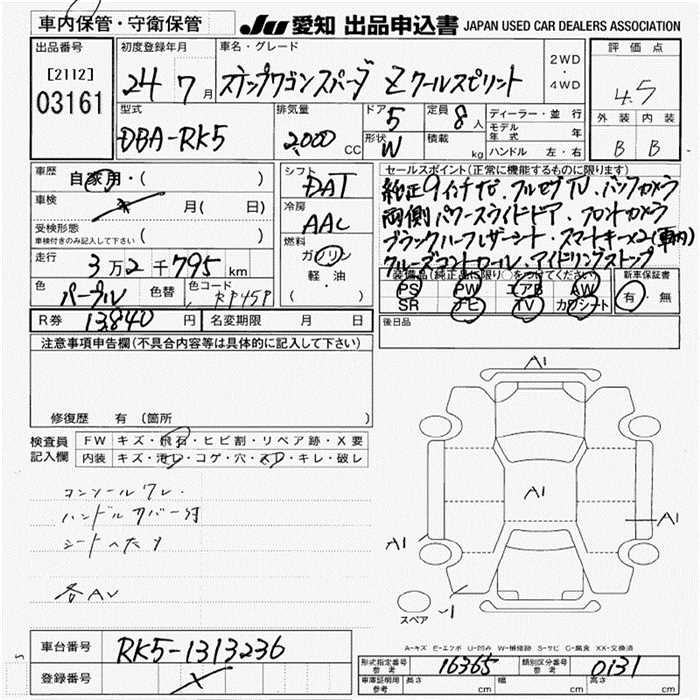 車内保管・守衛保管
JU 愛知 出品申込書 JAPAN USED CAR DEALERS ASSOCIATION
出品番号
[2112]
03161
初度登録年月
24 7月
車名・グレード
ステップワゴンスパーダ Zクールスピリット
2WD
・
4WD
評価点
4.5
外装 内装
B B
型式
DBA-RK5
排気量
2,000 CC
ドア
5
形状
W
定員
8人
積載
kg
ディーラー・並行
モデル年式 年
ハンドル 左・右
車歴 自家用・( )
車検 年 月( 日)
受検形態
車検付きのみ記入して下さい ( )
走行 3万2千795km
色 パープル 色替 色コード RP45P
シフト
DAT
冷房
AAC
燃料
ガソリン
軽・油
( )
セールスポイント(正常に機能するものに限ります)
純正9インチナビ、フルセグTV、バックカメラ
両側パワースライドドア、フロントカメラ
ブラックハーフレザーシート、スマートキー×2(車内)
クルーズコントロール、アイドリングストップ
装備品(純正品に限り○をつけてください)
PS PW エアB AW
SR ナビ TV カワシート
新車保証書
有・無
R券 13,840円 名変期限 月 日
後日品
注意事項申告欄(不具合内容等は具体的に記入して下さい)
修復歴 有(箇所 )
検査員記入欄
FW キズ・飛石・ヒビ割・リペア跡・X要
内装 キズ・汚レ・コゲ・穴・スレ・キレ・破レ
コンソールワレ・
ハンドルカバー付
シートヘたり
各AU
A1
A1
A1
A1
A1
スペア
A-キズ E-エクボ U-凹み W-補修跡 S-サビ C-腐食 XX-交換済
車台番号 RK5-1313236
登録番号
型式指定番号 参考 16365
類別区分番号 参考 0131
車庫証明用 参考 長さ cm 幅 cm 高さ cm